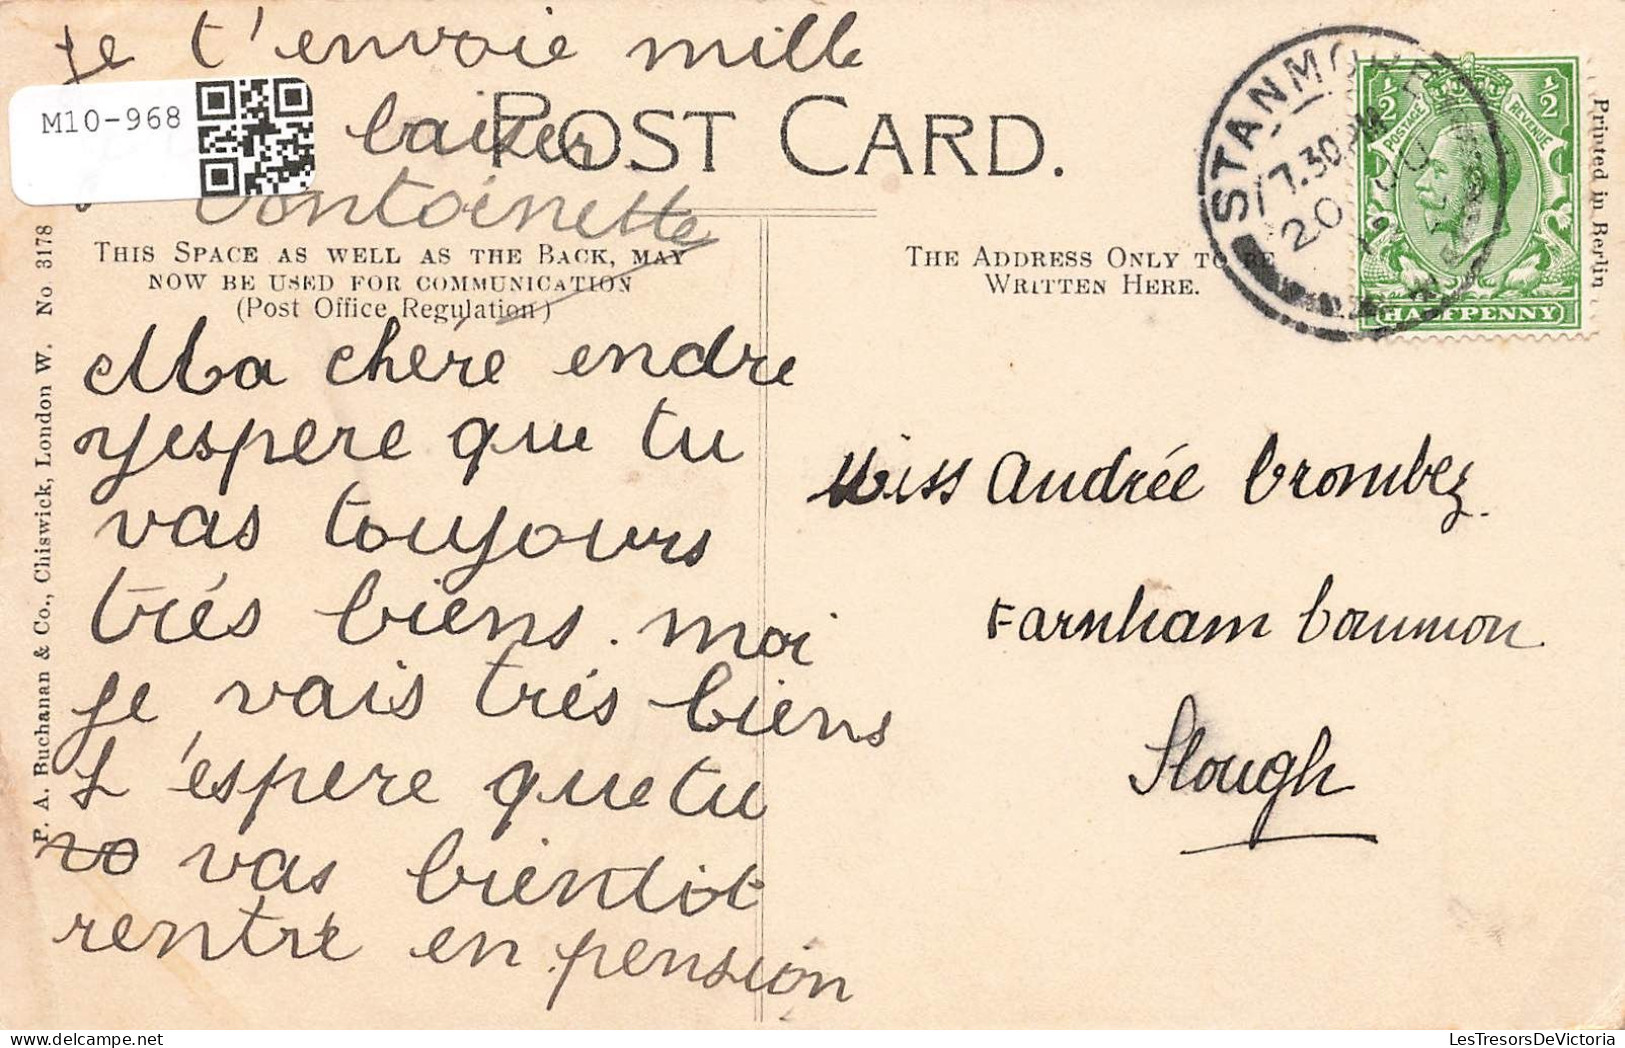 Je t'envoie mille
baiser
Tontoinette
M10-968
POST CARD.
THIS SPACE AS WELL AS THE BACK, MAY
NOW BE USED FOR COMMUNICATION
(Post Office Regulation)
THE ADDRESS ONLY TO BE
WRITTEN HERE.
STANMORE
7.30 PM
20
POSTAGE REVENUE
½ ½
HALFPENNY
Printed in Berlin
P. A. Buchanan & Co., Chiswick, London W. No. 3178
Ma chère endre
y'espere que tu
vas toujours
trés biens. moi
je vais trés biens
J'éspere que tu
vas bientiot
rentré en pension
Miss Andrée Crombez.
Farnham Common
Slough
LesTresorsDeVictoria